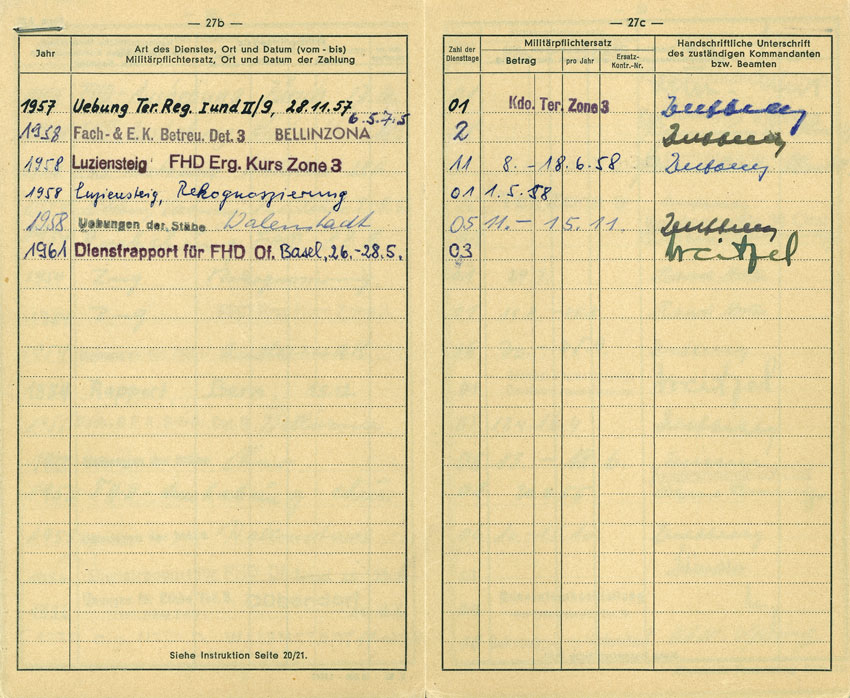 — 27b —
Jahr
Art des Dienstes, Ort und Datum (vom - bis)
Militärpflichtersatz, Ort und Datum der Zahlung
1957 Uebung Ter. Reg. I und II/9, 28.11.57
6.5.7.5
1958 Fach- & E. K. Betreu. Det. 3 BELLINZONA
1958 Luziensteig FHD Erg. Kurs Zone 3
1958 Luziensteig, Rekognoszierung
1958 Uebungen der Stäbe Walenstadt
1961 Dienstrapport für FHD Of. Basel, 26.-28.5.
Siehe Instruktion Seite 20/21.
— 27c —
Zahl der
Diensttage
Militärpflichtersatz
Betrag
pro Jahr
Ersatz-
Kontr.-Nr.
Handschriftliche Unterschrift
des zuständigen Kommandanten
bzw. Beamten
01 Kdo. Ter. Zone 3
2
11 8. - 18.6.58
01 1.5.58
05 11. - 15.11.
03